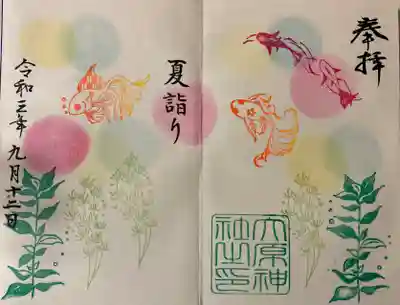 奉拝
夏詣り
令和三年九月十二日
大原神
社之印